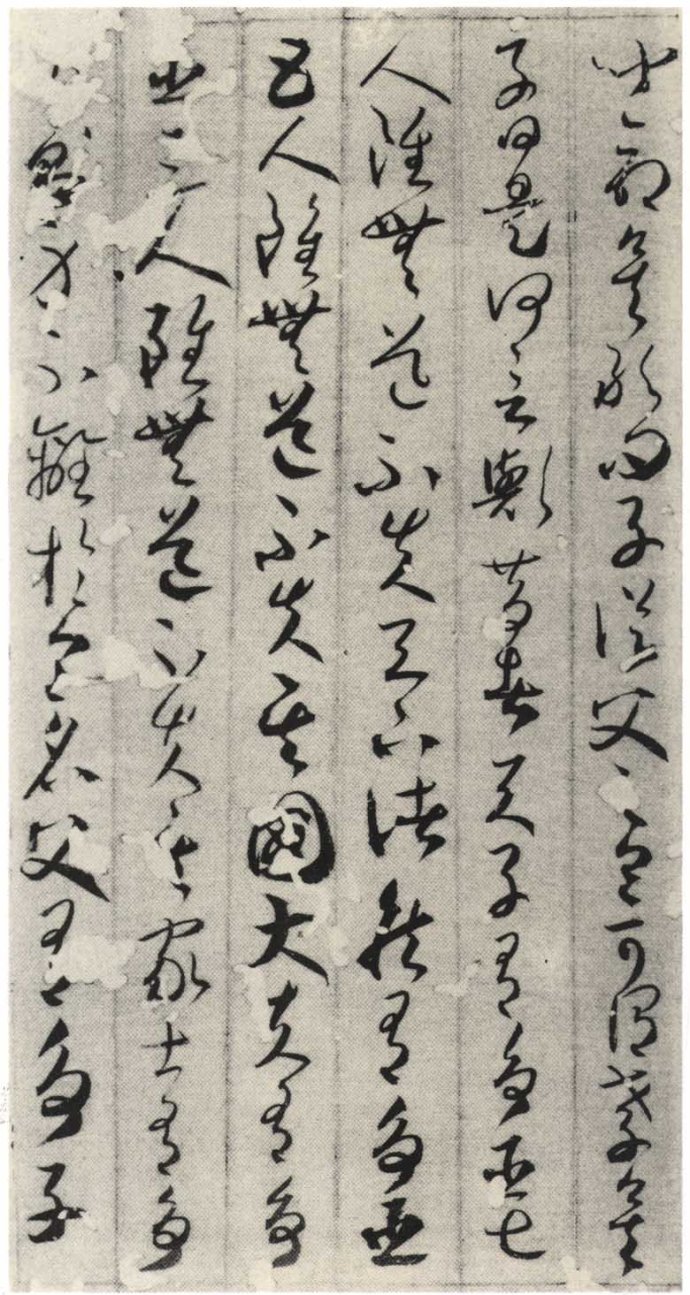 聞命矣敢問子從父之令可謂孝矣
子曰是何言與昔者天子有爭臣七
人雖無道不失天下諸侯有爭臣
五人雖無道不失其國大夫有爭
臣三人雖無道不失其家士有爭
則身不離於令名父有爭子